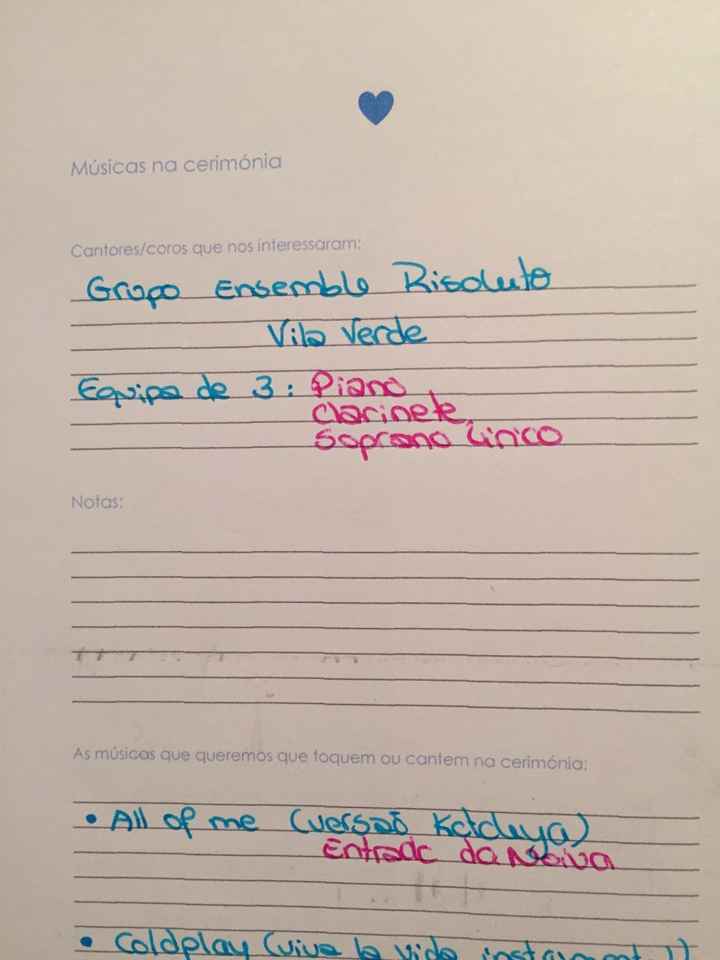 Músicas na cerimónia
Cantores/coros que nos interessaram:
Grupo Ensemble Risoluto
Vila Verde
Equipa de 3: Piano
Clarinete,
Soprano Lírico
Notas:
As músicas que queremos que toquem ou cantem na cerimónia:
• All of me (versão Katduya)
Entrada da Noiva
• Coldplay (viva la vida instrumental)